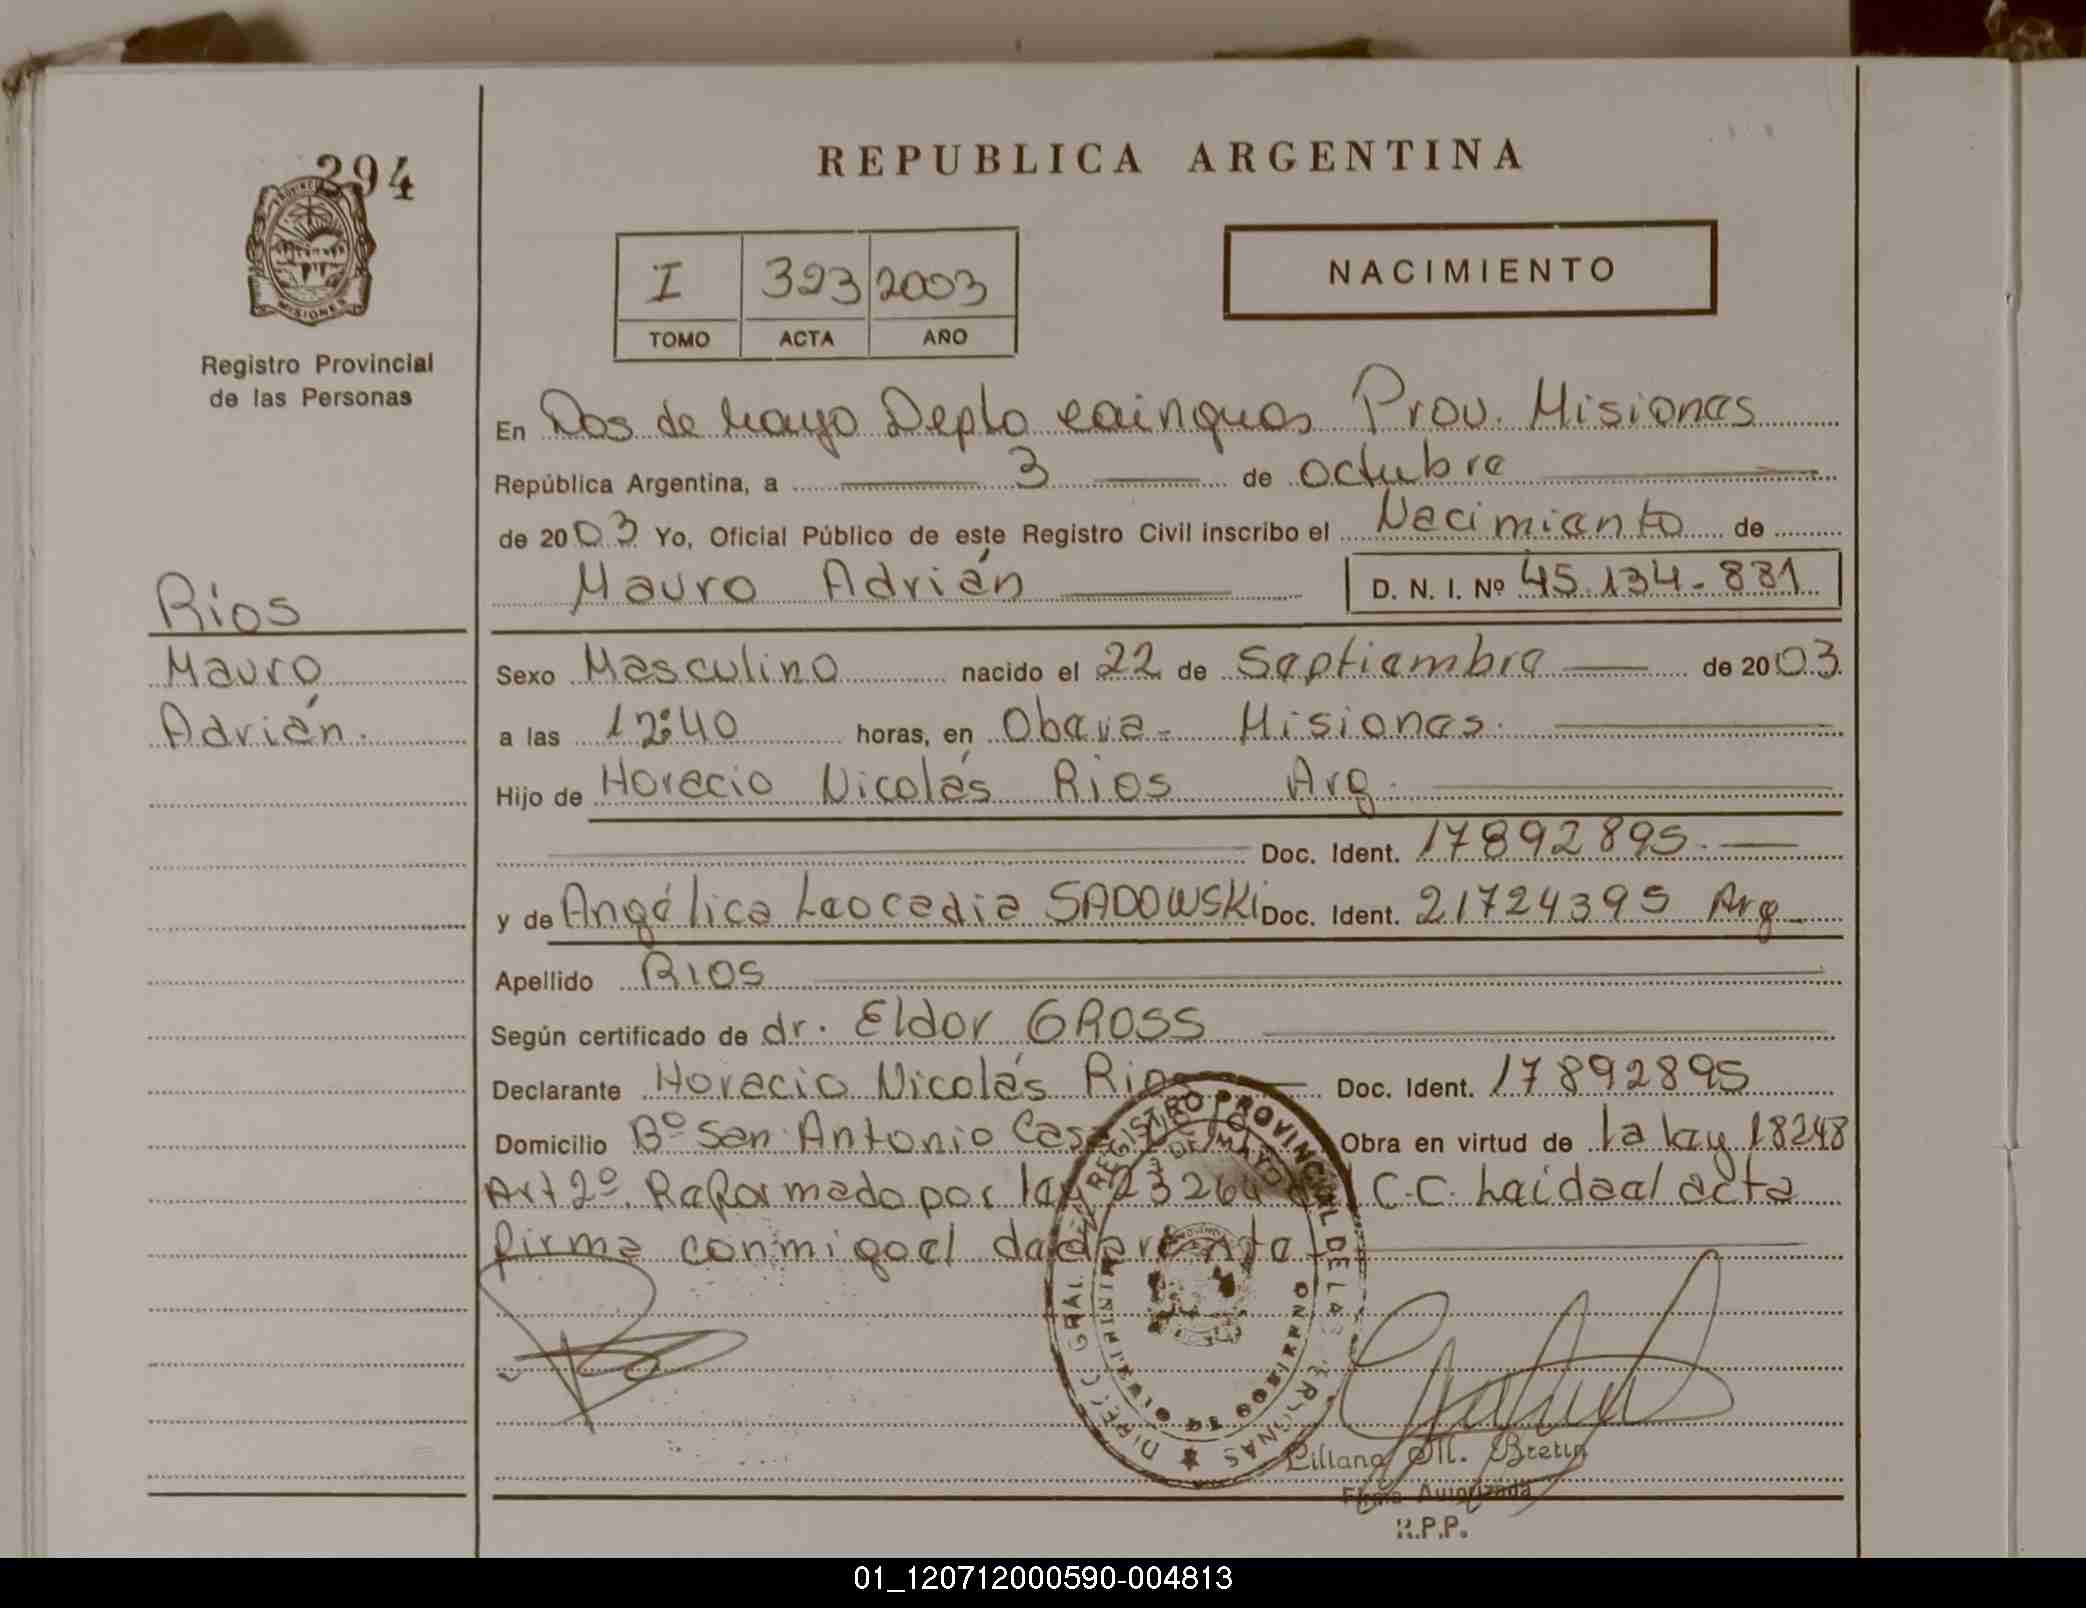 294
REPUBLICA ARGENTINA
I 323 2003
TOMO ACTA AÑO
NACIMIENTO
Registro Provincial
de las Personas
En Dos de Mayo Depto cainguas Prov. Misiones
República Argentina, a 3 de octubre
de 2003 Yo, Oficial Público de este Registro Civil inscribo el Nacimiento de
Mauro Adrián D. N. I. Nº 45.134-881
Ríos
Mauro
Adrián.
Sexo Masculino nacido el 22 de Septiembre de 2003
a las 12:40 horas, en Obera - Misiones.
Hijo de Horacio Nicolás Rios Arg.
Doc. Ident. 17892895.
y de Angélica Leocadia SADOWSKi Doc. Ident. 21724395 Arg
Apellido RIOS
Según certificado de dr. Eldor GROSS
Declarante Horacio Nicolás Rios Doc. Ident. 17892895
Domicilio Bº San Antonio Casa Obra en virtud de la ley 18248
Art 2º. Reformado por ley 23264 del C.C. Leida el acta
firma conmigo el declarante
DIREC. GRAL. REGISTRO PROVINCIAL DE LAS PERSONAS
2 DE MAYO
Liliana M. Bretin
Firma Autorizada
R.P.P.
01_120712000590-004813